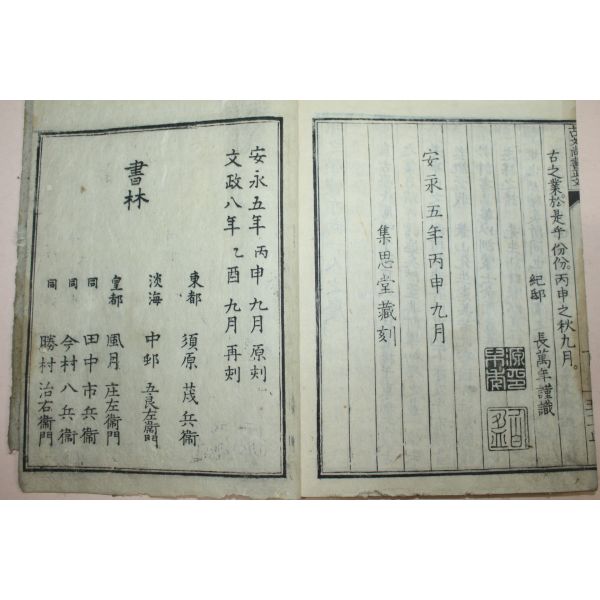 古之業於是乎份份。丙申之秋九月。
紀邸　長萬年謹識
安永五年丙申九月
集思堂藏刻
安永五年丙申九月原刻
文政八年乙酉九月再刻
書林
東都　須原茂兵衞
淡海　中邨五良左衞門
皇都　風月庄左衞門
同　田中市兵衞
同　今村八兵衞
同　勝村治右衞門